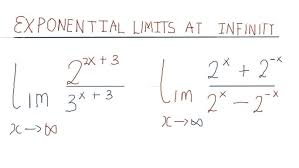 EXPONENTIAL LIMITS AT INFINITY
Lim x→∞ 2^(2x + 3) / 3^(x + 3)
Lim x→∞ (2^x + 2^-x) / (2^x - 2^-x)